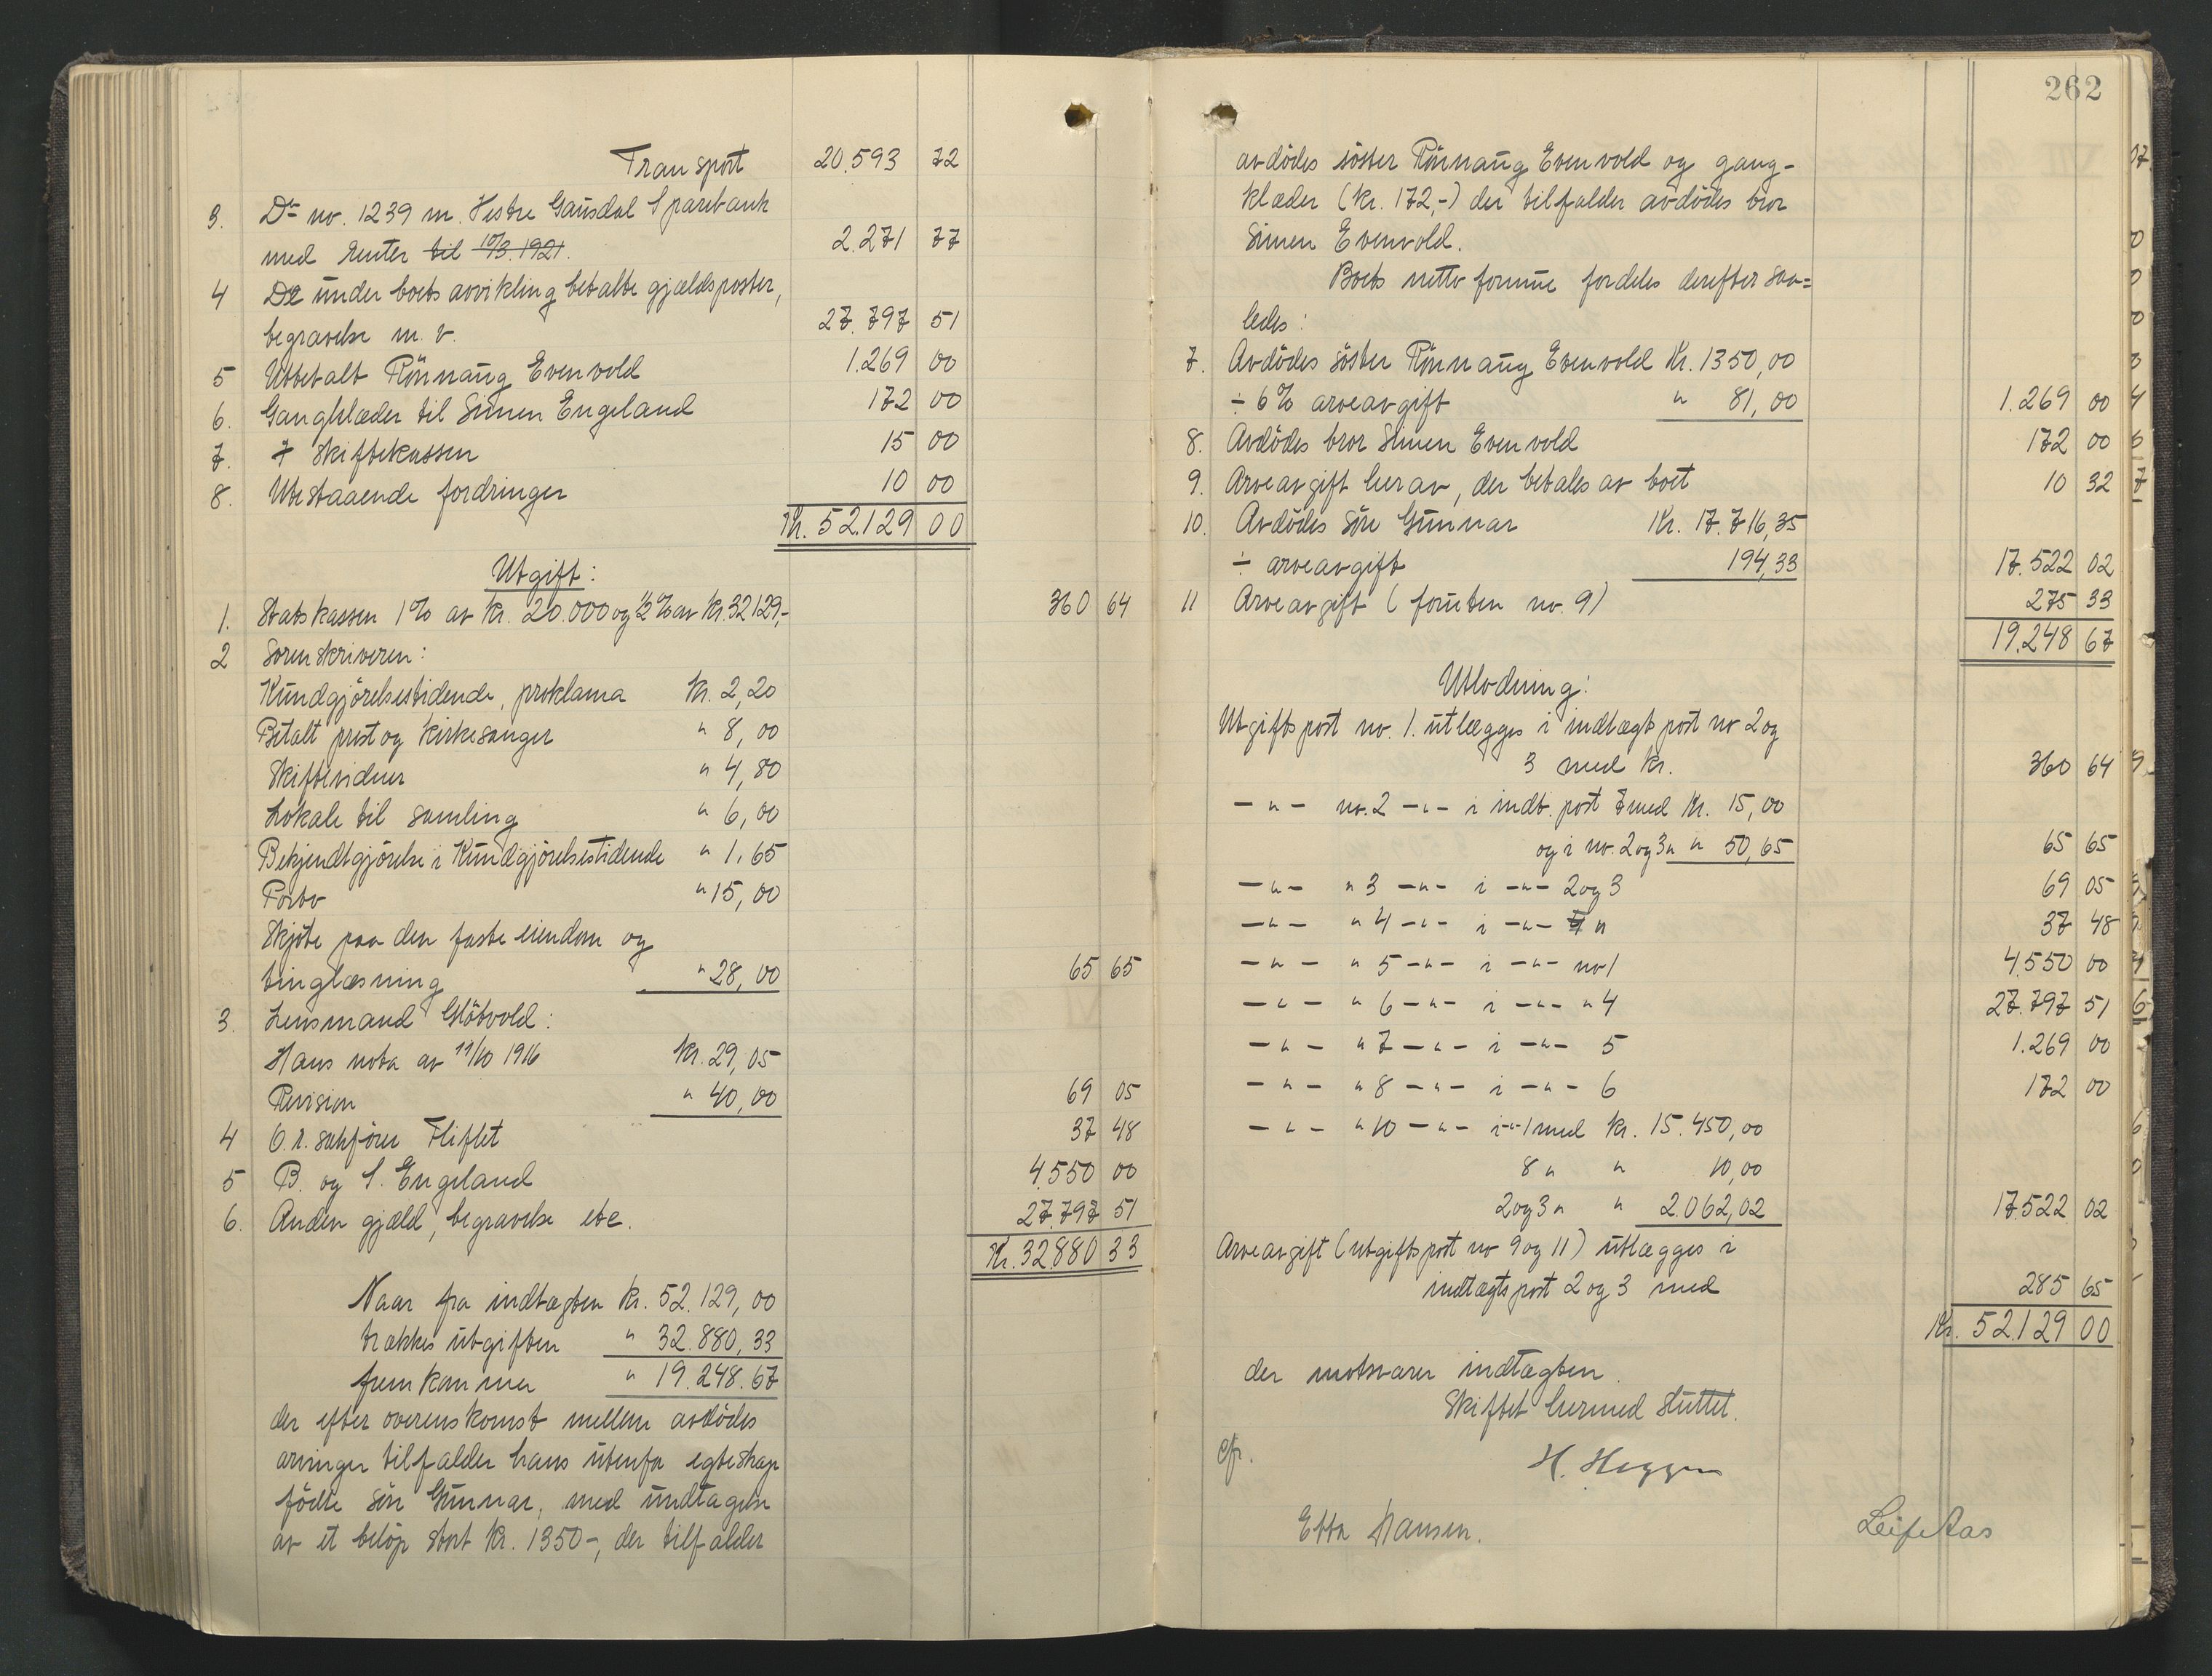 Transport 20.593 72
3. Do no. 1239 m. Vestre Gausdal Sparebank
med renter til 10/3.1921. 2.271 77
4 De under boets avvikling betalte gjældsposter,
begravelse m. v. 27.797 51
5 Utbetalt Rönnaug Evenvold 1.269 00
6. Gangklæder til Simen Engeland 172 00
7. Skiftekassen 15 00
8. Utestaaende fordringer 10 00
Kr. 52.129 00
Utgift:
1. Statskassen 1% av kr. 20.000 og ½% av kr. 32129,- 360 64
2 Sorenskriveren:
Kundgjörelsestidende, proklama kr. 2,20
Betalt prest og kirkesanger " 8,00
Skiftevidner " 4,80
Lokale til samling " 6,00
Bekjendtgjörelse i Kundgjörelsestidende " 1,65
Porto " 15,00
Skjöte paa den faste eiendom og
tinglæsning " 28,00 65 65
3. Lensmand Slötvold:
Hans nota av 11/10 1916 kr. 29,05
Revision " 40,00 69 05
4 O.r.sakförer Fliflet 37 48
5 B. og S. Engeland 4.550 00
6. Anden gjæld, begravelse etc. 27.797 51
Kr. 32.880 33
Naar fra indtægten kr. 52.129,00
trækkes utgiften " 32.880,33
fremkommer " 19.248.67
der efter overenskomst mellem avdödes
arvinger tilfalder hans utenfor egteskap
födte sön Gunnar, med undtagelse
av et belöp stort kr. 1350-, der tilfalder
262
avdödes söster Rönnaug Evenvold og gang-
klæder (kr. 172,-) der tilfalder avdödes bror
Simen Evenvold.
Boets netto formue fordeles derefter saa=
ledes:
7. Avdödes söster Rönnaug Evenvold Kr. 1350,00
÷ 6% arveavgift " 81,00 1.269 00
8. Avdödes bror Simen Evenvold 172 00
9. Arveavgift herav, der betales av boet 10 32
10. Avdödes sön Gunnar Kr. 17.716,35
÷ arveavgift 194,33 17.522 02
11 Arveavgift (foruten no. 9) 275 33
19.248 67
Utlodning:
Utgiftspost no. 1. utlægges i indtægtspost no 2 og
3 med kr. 360 64
-"- no. 2 -"- i indt. post 7 med Kr. 15,00
og i no. 2 og 3 " " 50,65 65 65
-"- " 3 -"- i -"- 2 og 3 69 05
-"- " 4 -"- i -"- " 37 48
-"- " 5 -"- i -"- no 1 4.550 00
-"- " 6 -"- i -"- " 4 27.797 51
-"- " 7 -"- i -"- 5 1.269 00
-"- " 8 -"- i -"- 6 172 00
-"- " 10 -"- i -"- 1 med Kr. 15.450,00
8 " " 10,00
2 og 3 " " 2.062,02 17.522 02
Arveavgift (utgiftspost no 9 og 11) utlægges i
indtægtspost 2 og 3 med 285 65
Kr. 52.129 00
der motsvarer indtægten.
Skiftet hermed sluttet.
Cfr. H. Heggen
Etta Hansen. Leif Aas